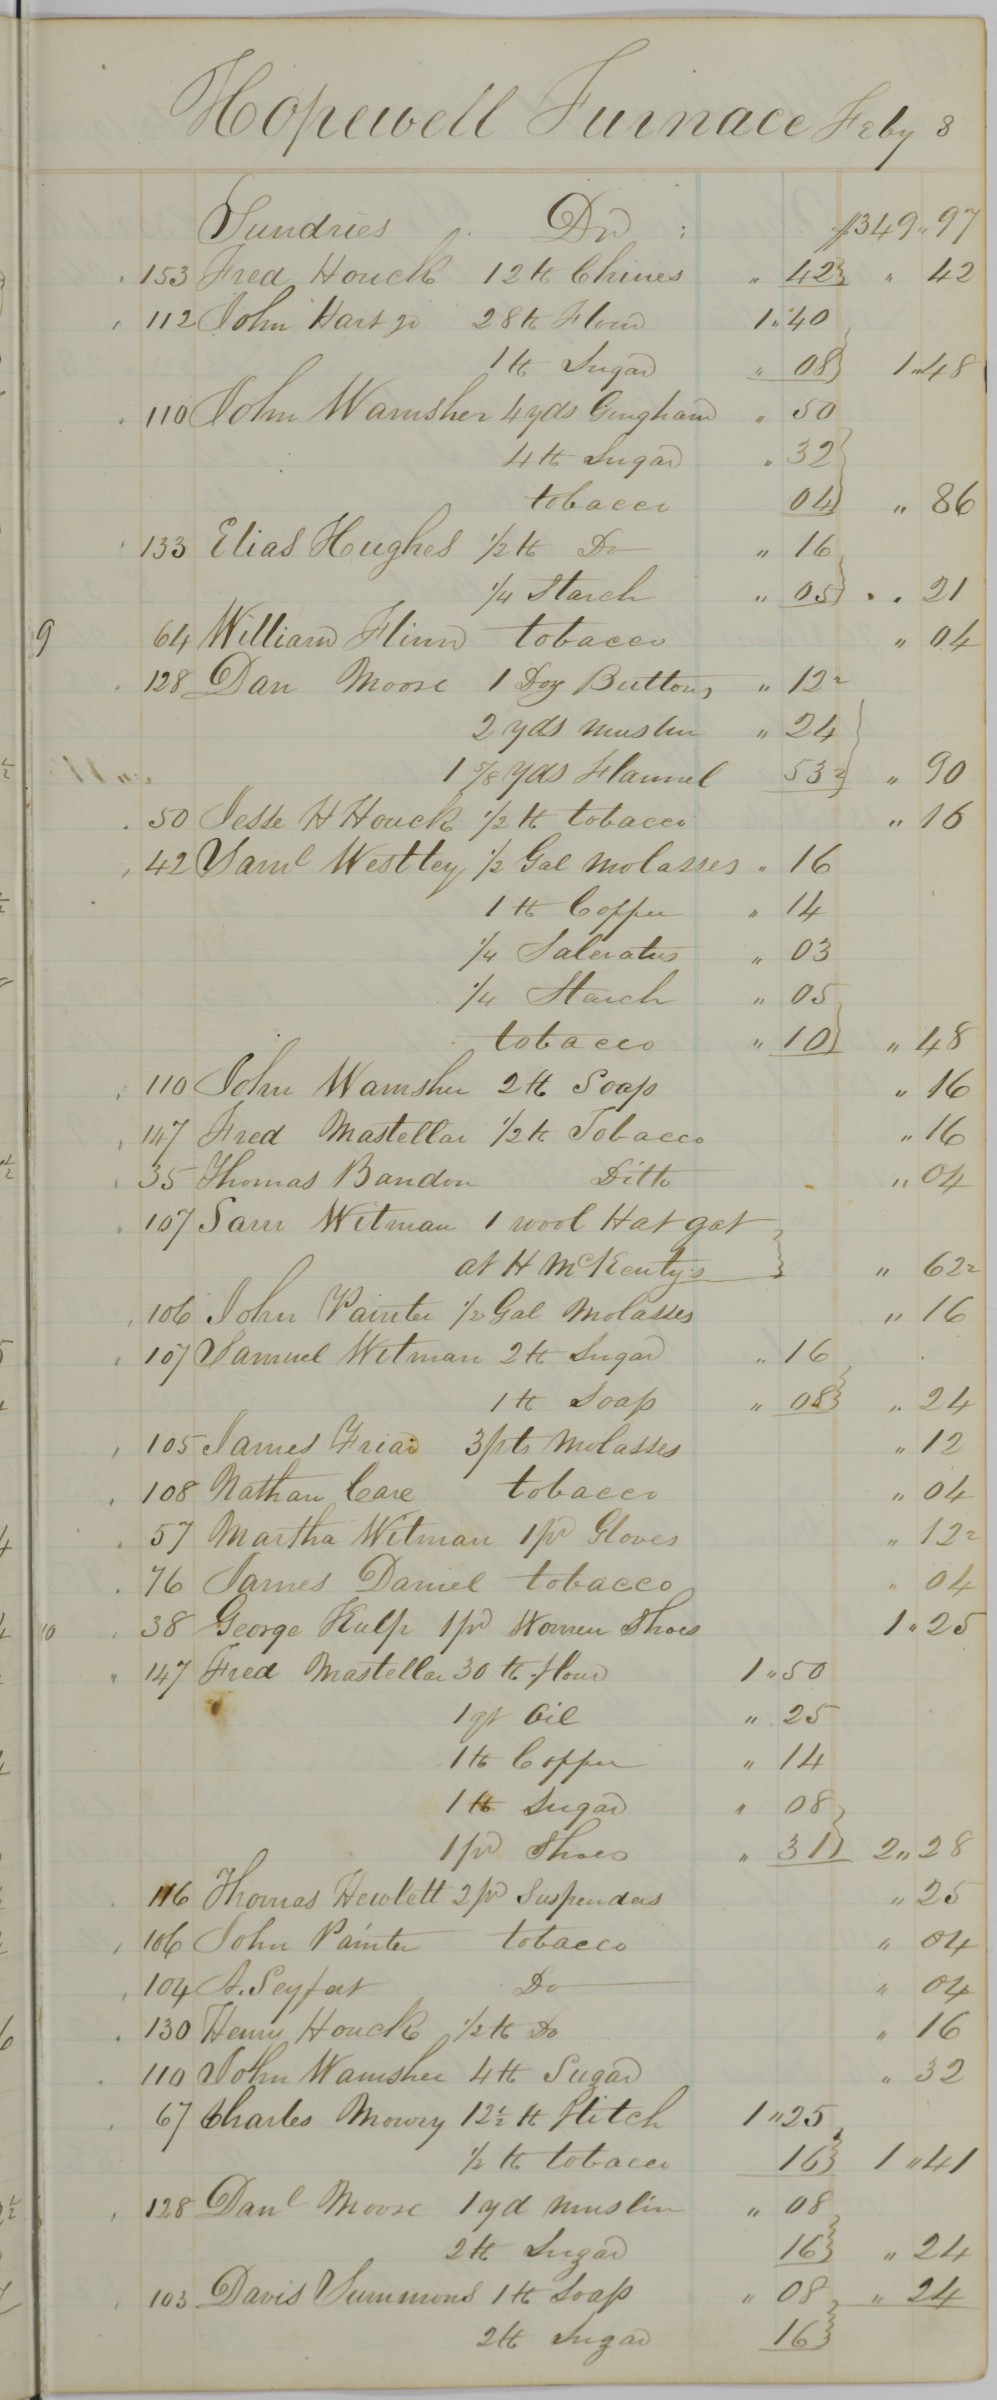 Hopewell Furnace Feby 8
Sundries Dr : $349 " 97
153 Fred Houck 12 ℔ Chines " 42 " 42
112 John Hart jr 28 ℔ Flour 1 " 40
1 ℔ Sugar " 08 1 " 48
110 John Wamsher 4 yds Gingham " 50
4 ℔ Sugar " 32
tobacco 04 " 86
133 Elias Hughes 1/2 ℔ Do " 16
1/4 Starch " 05 " 21
9 64 William Flinn tobacco " 04
128 Dan Moore 1 Doz Buttons " 12 2
2 yds muslin " 24
1 5/8 yds Flannel 53 2 " 90
50 Jesse H Houck 1/2 ℔ tobacco " 16
42 Saml Westley 1/2 Gal Molasses " 16
1 ℔ Coffee " 14
1/4 Saleratus " 03
1/4 Starch " 05
tobacco " 10 " 48
110 John Wamsher 2 ℔ Soap " 16
147 Fred Mastellar 1/2 ℔ Tobacco " 16
35 Thomas Bandon Ditto " 04
107 Sam Witman 1 wool Hat got
at H McKentys " 62 2
106 John Painter 1/2 Gal Molasses " 16
107 Samuel Witman 2 ℔ Sugar " 16
1 ℔ Soap " 08 " 24
105 James Friar 3 pts Molasses " 12
108 Nathan Care tobacco " 04
57 Martha Witman 1 pr Gloves " 12 2
76 James Daniel tobacco " 04
10 38 George Kulp 1 pr Women Shoes 1 " 25
147 Fred Mastellar 30 ℔ flour 1 " 50
1 qt Oil " 25
1 ℔ Coffee " 14
1 ℔ Sugar " 08
1 pr Shoes " 31 2 " 28
116 Thomas Hewlett 2 pr Suspenders " 25
106 John Painter tobacco " 04
104 A. Seyfert Do " 04
130 Henry Houck 1/2 ℔ Do " 16
110 John Wamsher 4 ℔ Sugar " 32
67 Charles Mowry 12 1/2 ℔ Flitch 1 " 25
1/2 ℔ tobacco 16 1 " 41
128 Danl Moore 1 yd muslin " 08
2 ℔ Sugar 16 " 24
103 Davis Summons 1 ℔ Soap " 08 " 24
2 ℔ Sugar 16